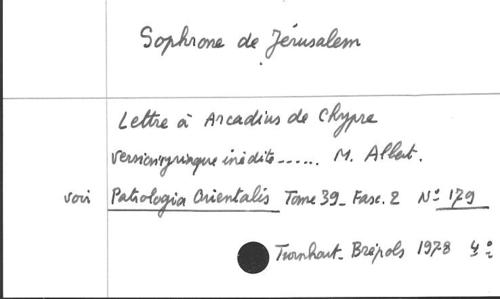 Sophrone de Jérusalem
Lettre à Arcadius de Chypre
Version syriaque inédite...... M. Albert.
voir Patrologia Orientalis Tome 39_ Fasc. 2 N° 179
Turnhout_ Brépols 1978 4°